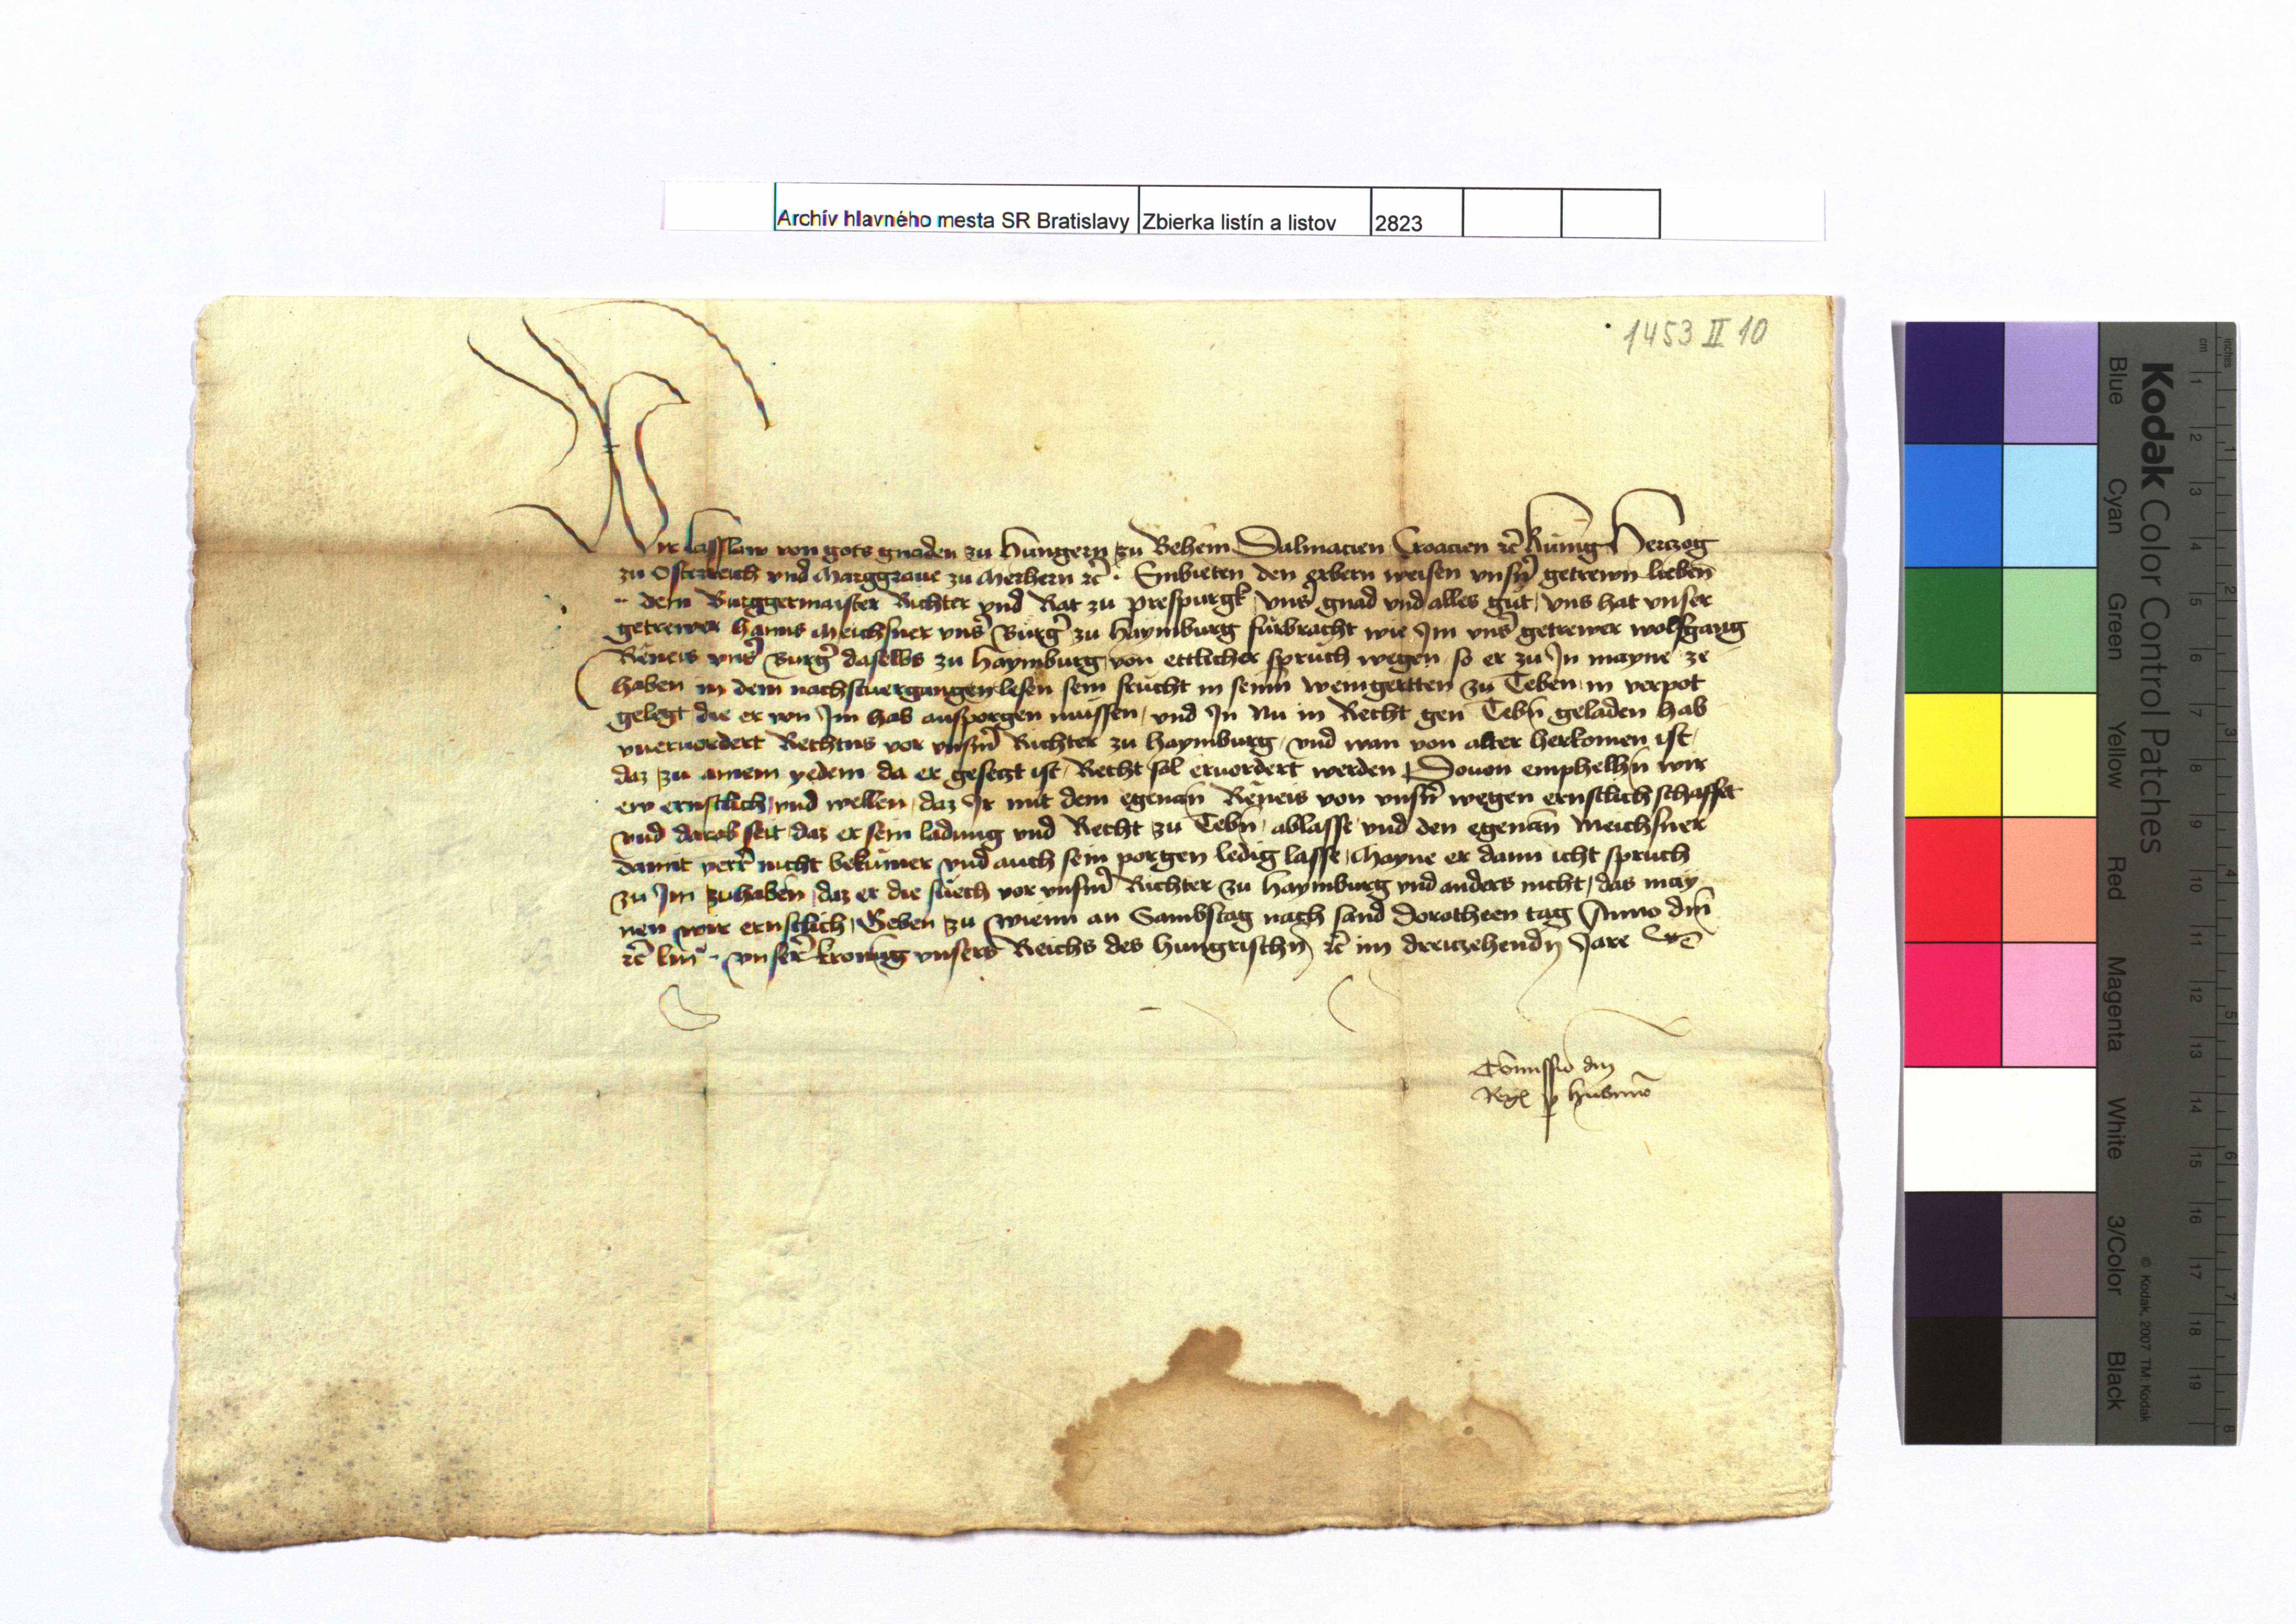 Archív hlavného mesta SR Bratislavy Zbierka listín a listov 2823
1453 II 10
Wir Lasslaw von gots gnaden zu Hungern zu Behem Dalmacien Croacien rc̃ kunig Herczog
zu Osterreich vnd Marggraue zu Merhern rc̃. Embieten den erbern weisen vnsñ getrewn lieben
dem Burggermaister Richter vnd Rat zu prespurgk vnsˀ gnad vnd alles gut, vns hat vnser
getrewer Hanns Meichsner vnsˀ Burgˀ zu Haymburg furbracht wie Im vnsˀ getrewer wolfgang
Reneis vnsˀ Burgˀ daselbs zu Haymburg von ettlicher spruch wegen so er zu In mayne ze
haben in dem nachstuergangen lesen sein frucht in seinn weingertten zu Teben in verpot
gelegt die er von Im hab ausporgen mussen, vnd In Nu in Recht gen Tebñ geladen hab
vneruordert Rechtns vor vnsm̃ Richter zu Haymburg, vnd wan von alter herkomen ist,
daz zu ainem yedem da er gesetzt ist, Recht sol eruordert werden, Douon emphelhñ wir
ew ernstlich vnd wellen, daz Ir mit dem egenañ Reneis von vnsñ wegen ernstlich schaffet
vnd darob seit daz er sein ladung vnd Recht zu Tebñ ablasse vnd den egenañ Meichsner
damit verrˀ nicht bekumer vnd auch sein porgen ledig lasse, Mayne er dann icht spruch
zu Im zuhaben, daz er die suech vor vnsm̃ Richter zu Haymburg vnd anders nicht, das may
nen wir ernstlich, Geben zu wienn an Sambstag nach sand Dorotheen tag Anno dm̃
rc̃ liijº. vnserˀ kronung vnsers Reichs des Hungrischñ rc̃ im dreitzehendñ Jare
Com̃issio dñi
Regˀ p
Kodak Color Control Patches
Blue Cyan Green Yellow Red Magenta White 3/Color Black
© Kodak, 2007 TM: Kodak
inches 1 2 3 4 5 6 7 8
cm 1 2 3 4 5 6 7 8 9 10 11 12 13 14 15 16 17 18 19